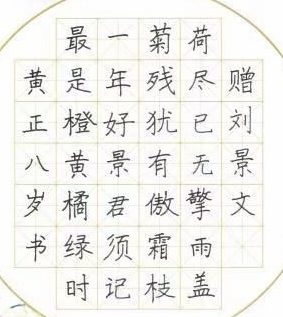 赠刘景文
荷尽已无擎雨盖
菊残犹有傲霜枝
一年好景君须记
最是橙黄橘绿时
黄正八岁书